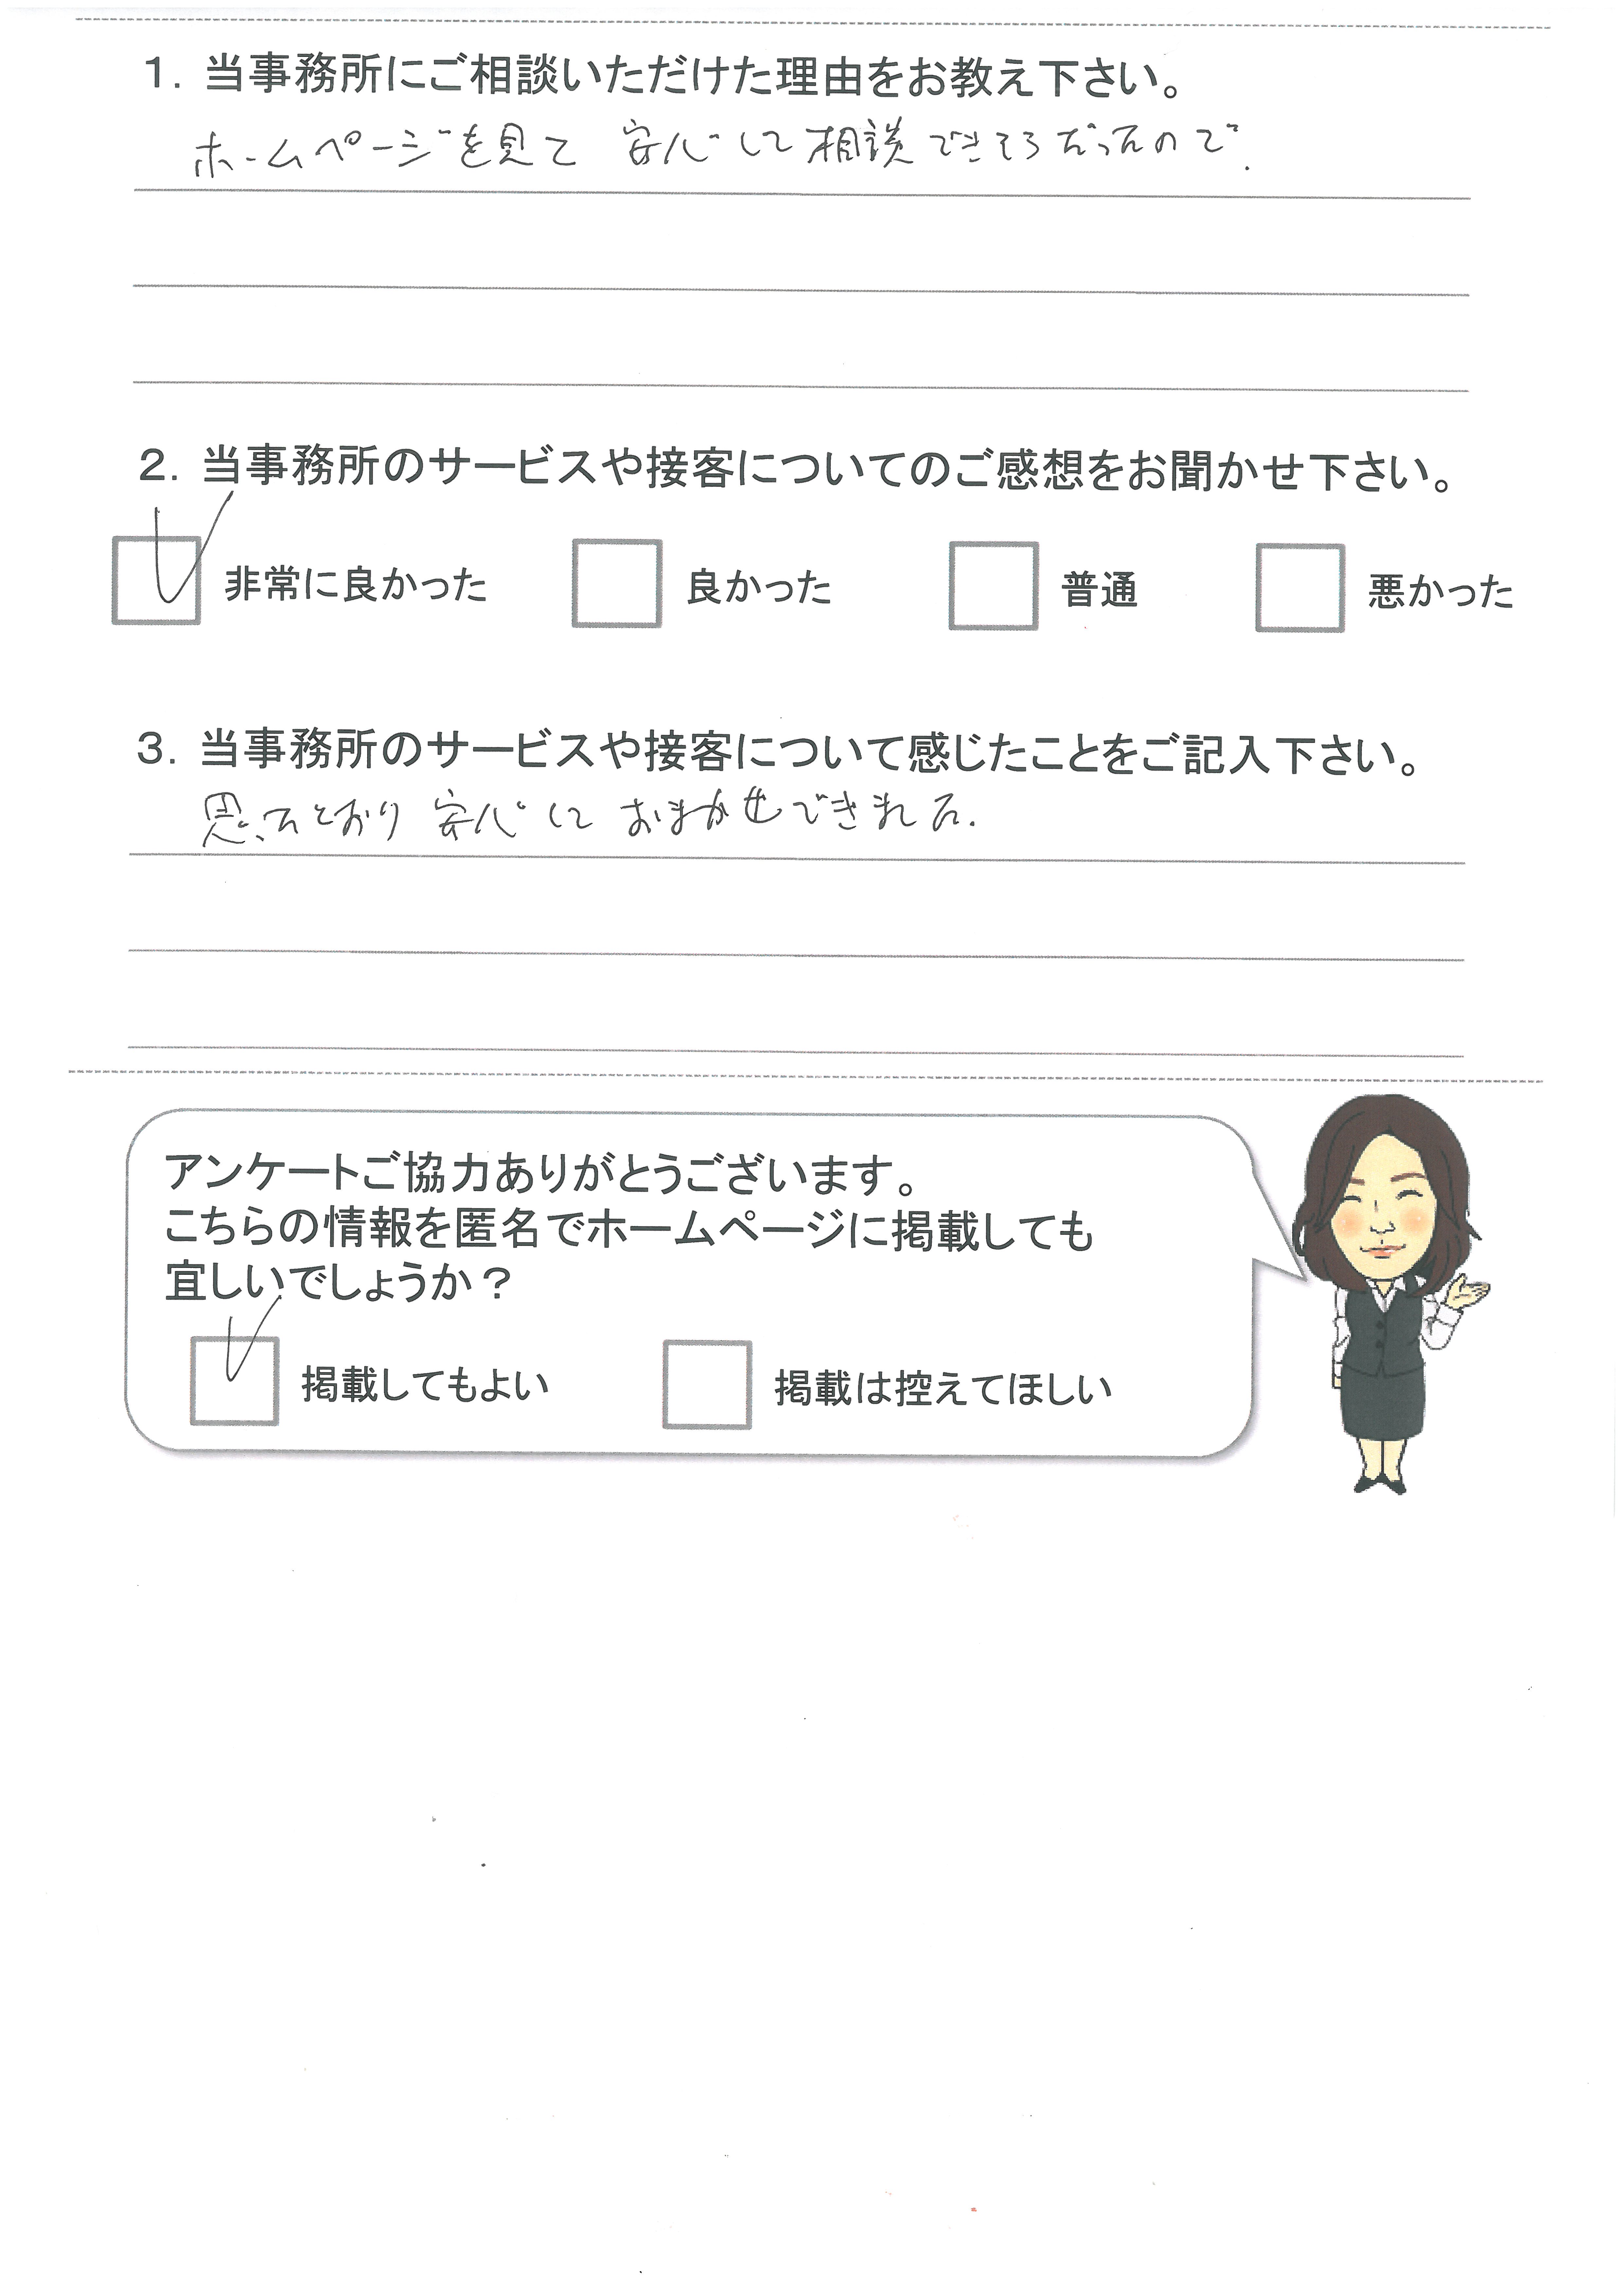 1. 当事務所にご相談いただけた理由をお教え下さい。
ホームページを見て 安心して相談できそうだったので.
2. 当事務所のサービスや接客についてのご感想をお聞かせ下さい。
非常に良かった 良かった 普通 悪かった
3. 当事務所のサービスや接客について感じたことをご記入下さい。
思ったとおり 安心して おまかせできました.
アンケートご協力ありがとうございます。
こちらの情報を匿名でホームページに掲載しても
宜しいでしょうか？
掲載してもよい 掲載は控えてほしい